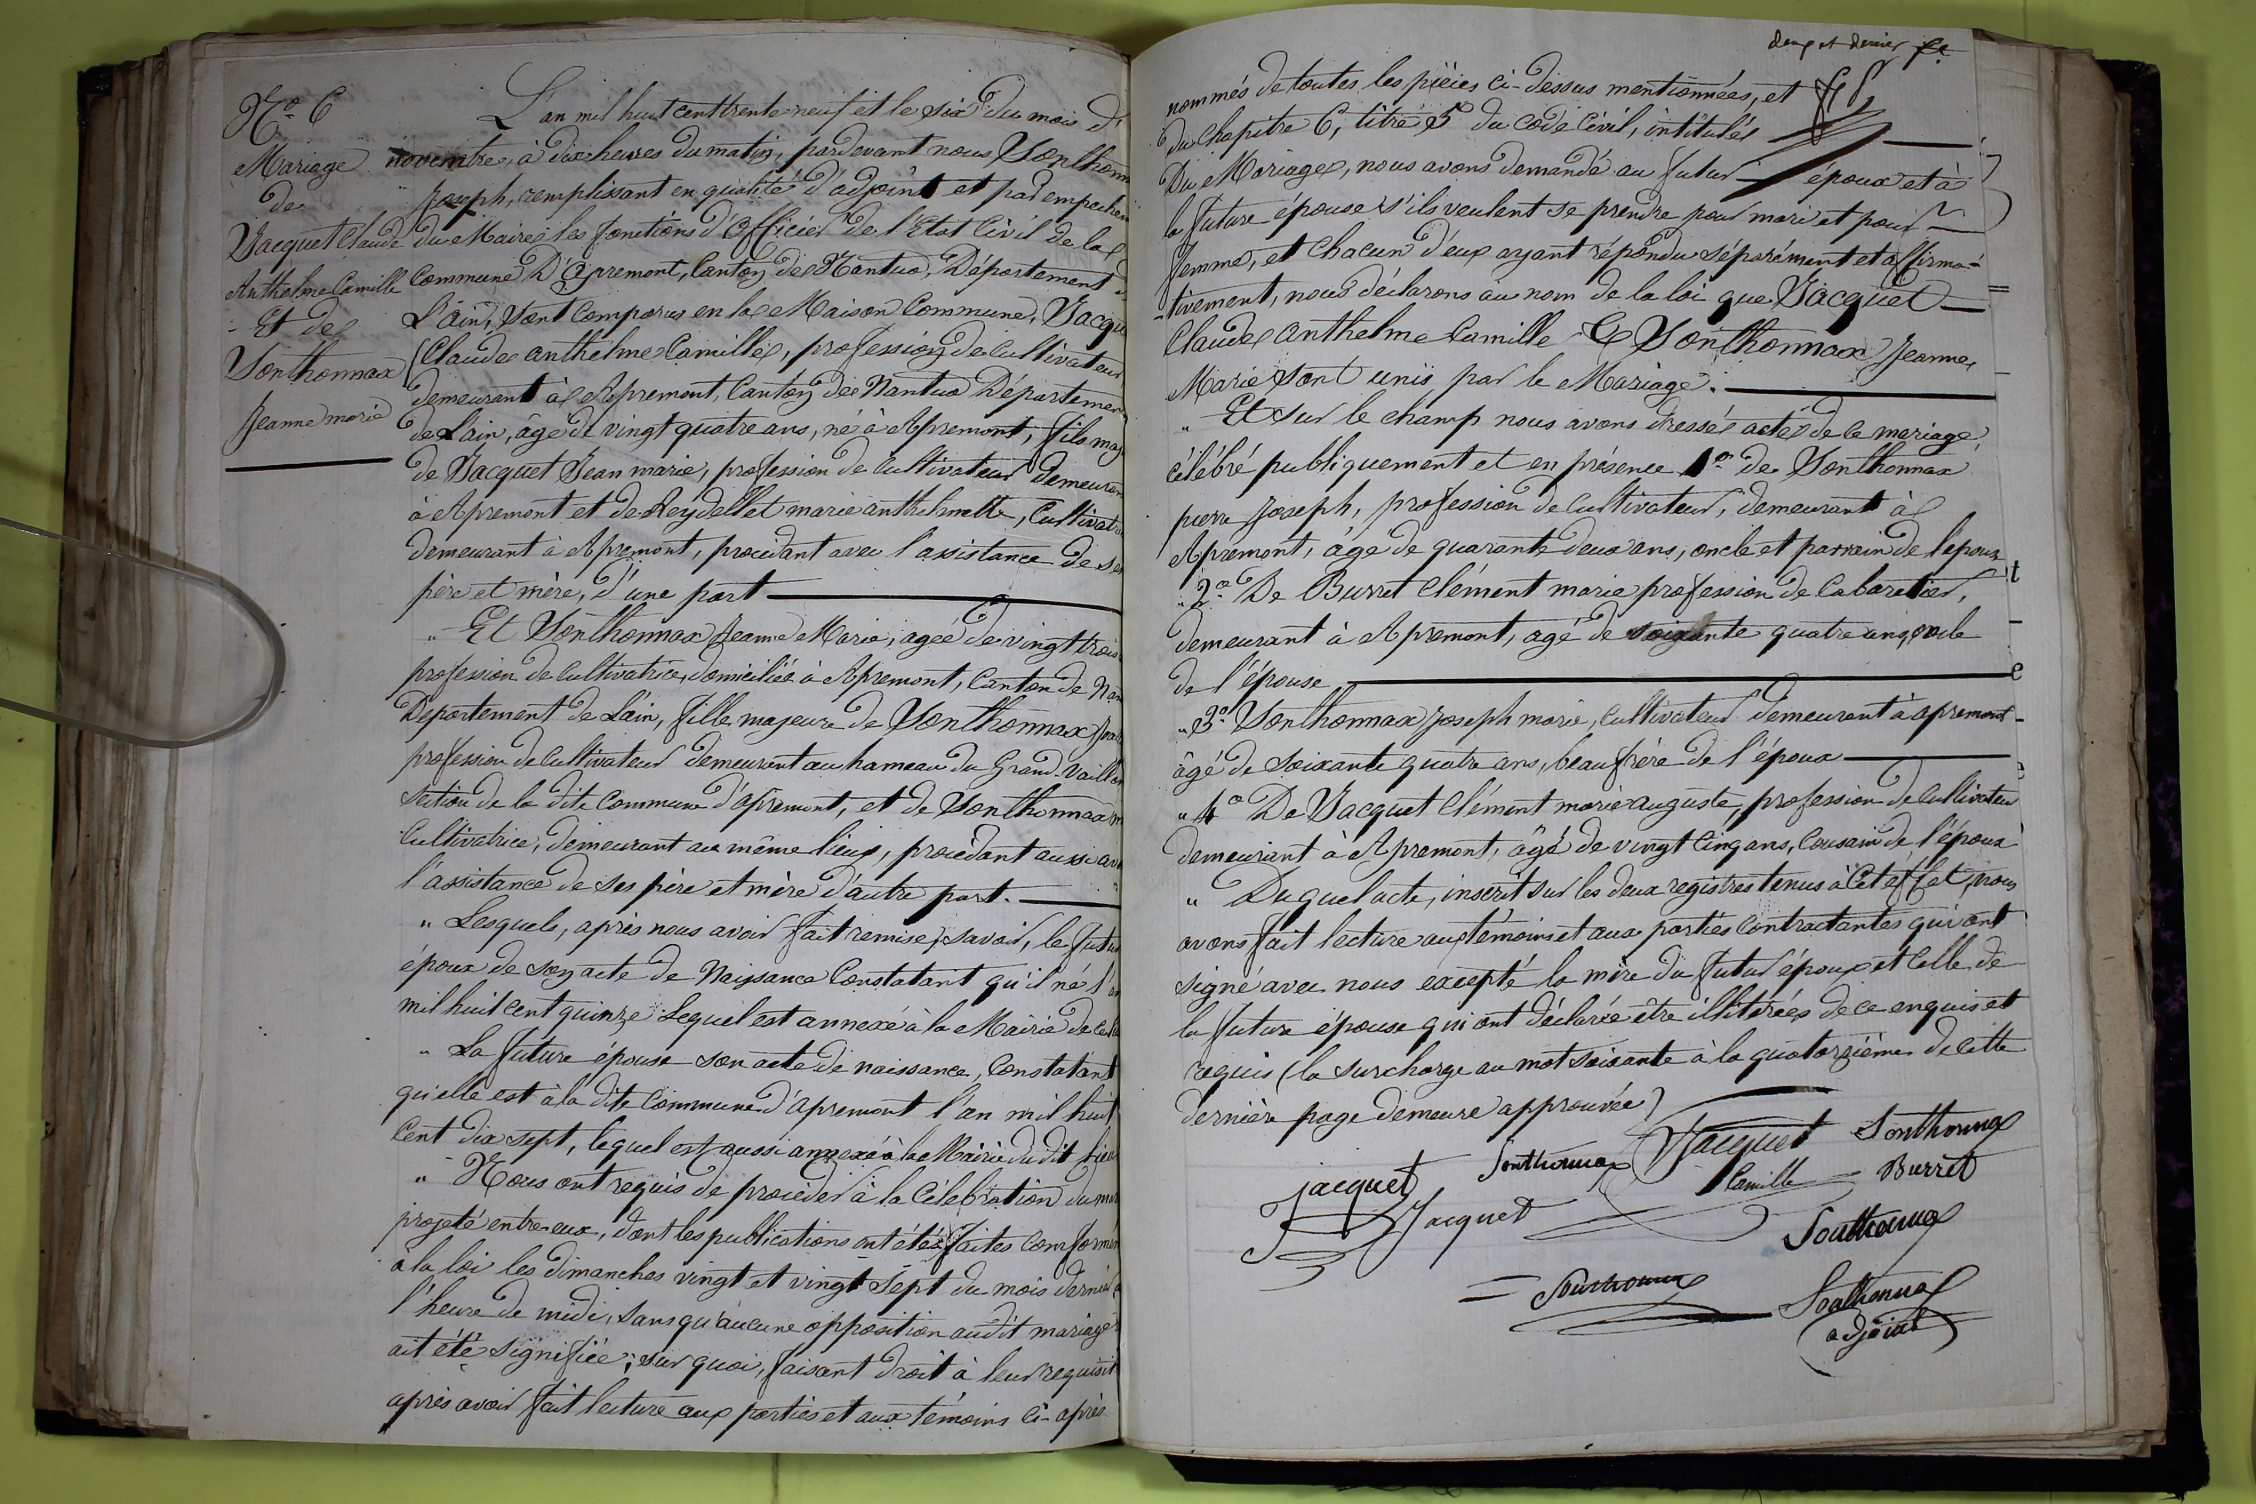 N.o 6
Mariage
de
Jacquet Claude
Anthelme Camille
Et de
Sonthonnax
Jeanne marie
L'an mil huit cent trente neuf et le six du mois d
novembre, à dix heures du matin, pardevant nous Sonthonn
Joseph, remplissant en qualité d'adjoint et par empechem
du Maire les fonctions d'Officier de l'Etat Civil de la
Commune D'Apremont, Canton de Nantua, Département d
L'ain, sont comparus en la Maison Commune, Jacqu
Claude anthelme Camille, profession de Cultivateur
demeurant à Apremont, Canton de Nantua Départemen
de L'ain, âgé de vingt quatre ans, né à Apremont, fils maj
de Jacquet Jean marie, profession de Cultivateur demeuran
à Apremont et de Reydellet marie anthelmette, Cultivatr
demeurant à Apremont, procédant avec l'assistance de se
père et mère, d'une part
" Et Sonthonnax Jeanne Marie, agée de vingt trois
profession de Cultivatrice, domiciliée à Apremont, Canton de Nan
Département de L'ain, fille majeure de Sonthonnax
profession de Cultivateur demeurant au hameau du Grand-Vaillon
Section de la dite Commune d'apremont, et de Sonthonnax
Cultivatrice, demeurant au même lieux, procédant aussi av
l'assistance de ses père et mère d'autre part.
" Lesquels, après nous avoir fait remise, savoir, le futur
époux de son acte de Naissance Constatant qu'il né l'an
mil huit cent quinze Lequel est annexé à la Mairie de
" La future épouse son acte de naissance, Constatant
qu'elle est à la dite Commune d'apremont l'an mil huit
Cent dix sept, lequel est aussi annexé à la Mairie du dit lieu
" Nous ont requis de procéder à la Célébration du mar
projeté entre eux, dont les publications ont étés faites Conformém
à la loi les dimanches vingt et vingt sept du mois dernier
l'heure de midi, sans qu'aucune opposition audit mariage
ait été signifiée; sur quoi, faisant droit à leur requisit
après avoir fait lecture aux parties et aux témoins ci-après
deux et dernier
nommés de toutes les pièces ci-dessus mentionnées, et
du chapitre 6, titre 5 du code Civil, intitulé
Du Mariage, nous avons demandé au futur époux et à
la future épouse s'ils veulent se prendre pour mari et pour
femme, et Chacun d'eux ayant répondu séparément et affirma-
-tivement, nous déclarons au nom de la loi que Jacquet
Claude anthelme Camille & Sonthonnax Jeanne
Marie sont unis par le Mariage.
" Et sur le champ nous avons dressé acte de ce mariage
célébré publiquement et en présence 1.o de Sonthonnax
pierre Joseph, profession de Cultivateur, demeurant à
Apremont, âgé de quarante deux ans, oncle et parrain de l'epoux
" 2.o De Burret Clément marie profession de Cabaretier,
demeurant à Apremont, agé de soixante quatre ans, oncle
de l'épouse
" 3.o Sonthonnax Joseph marie, Cultivateur demeurant à apremont
âgé de soixante quatre ans, beau frère de l'époux
" 4.o De Jacquet Clément marie auguste, profession de Cultivateur
demeurant à Apremont, âgé de vingt Cinq ans, Cousin de l'époux
" Duquel acte, inscrit sur les deux registres tenus à Cet effet, nous
avons fait lecture aux témoins et aux parties Contractantes qui ont
signé avec nous excepté la mère du futur époux et Celle de
la future épouse qui ont déclarée être illitérées de ce enquis et
requis (la surcharge au mot soixante à la quatorzième de cette
dernière page demeure approuvée)
Jacquet Sonthonnax Jacquet Sonthonnax
Jacquet Camille Burret
Sonthonnax
Sonthonnax Sonthonnax
adjoint